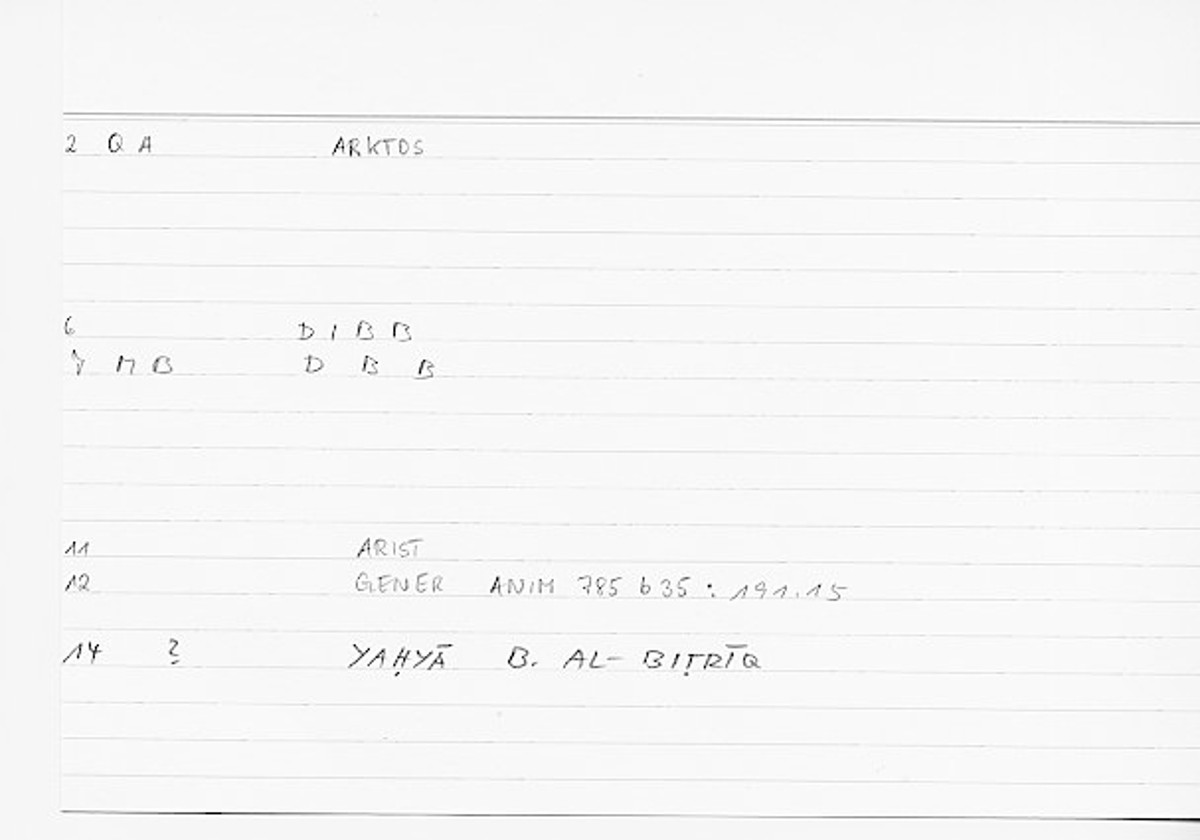 2 Q A ARKTOS
6 D I B B
M B D B B
11 ARIST
12 GENER ANIM 785 b 35 : 191.15
14 ? YAḤYĀ B. AL- BIṬRĪQ